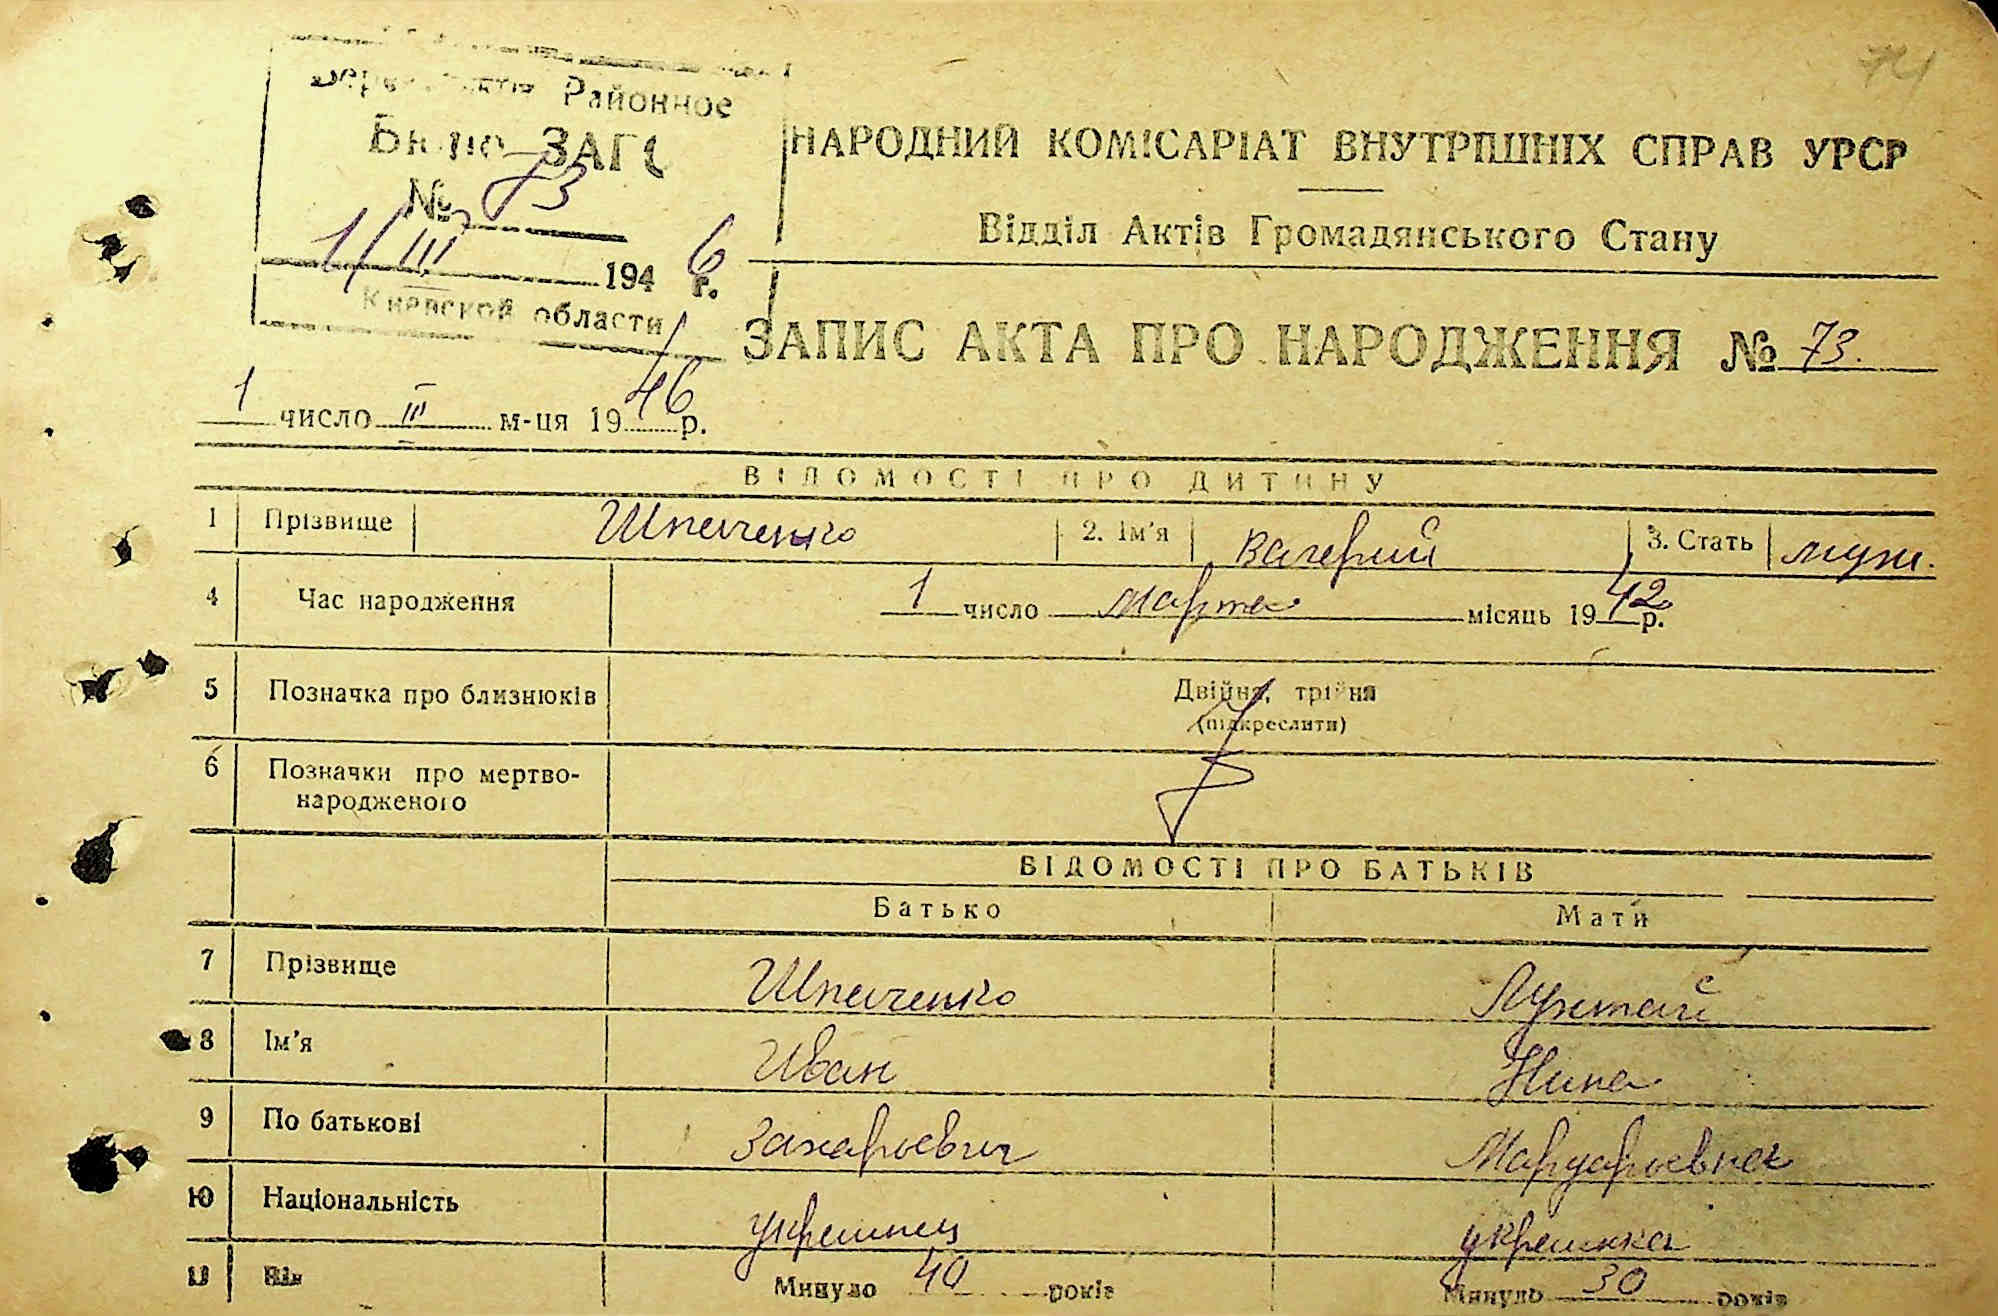 74
Районное
Бюро ЗАГС
№ 73
1/III 1946 г.
Киевской области
НАРОДНИЙ КОМІСАРІАТ ВНУТРІШНІХ СПРАВ УРСР
Відділ Актів Громадянського Стану
ЗАПИС АКТА ПРО НАРОДЖЕННЯ № 73.
1 число III м-ця 1946 р.
ВІДОМОСТІ ПРО ДИТИНУ
1 Прізвище Шпаченко 2. Ім'я Валерий 3. Стать муж.
4 Час народження 1 число марта місяць 1942 р.
5 Позначка про близнюків Двійня, трійня
(підкреслити)
6 Позначки про мертво-
народженого
ВІДОМОСТІ ПРО БАТЬКІВ
Батько Мати
7 Прізвище Шпаченко Лунтай
8 Ім'я Иван Нина
9 По батькові Захарьевич
10 Національність украинец украинка
11 Вік Минуло 40 років Минуло 30 років